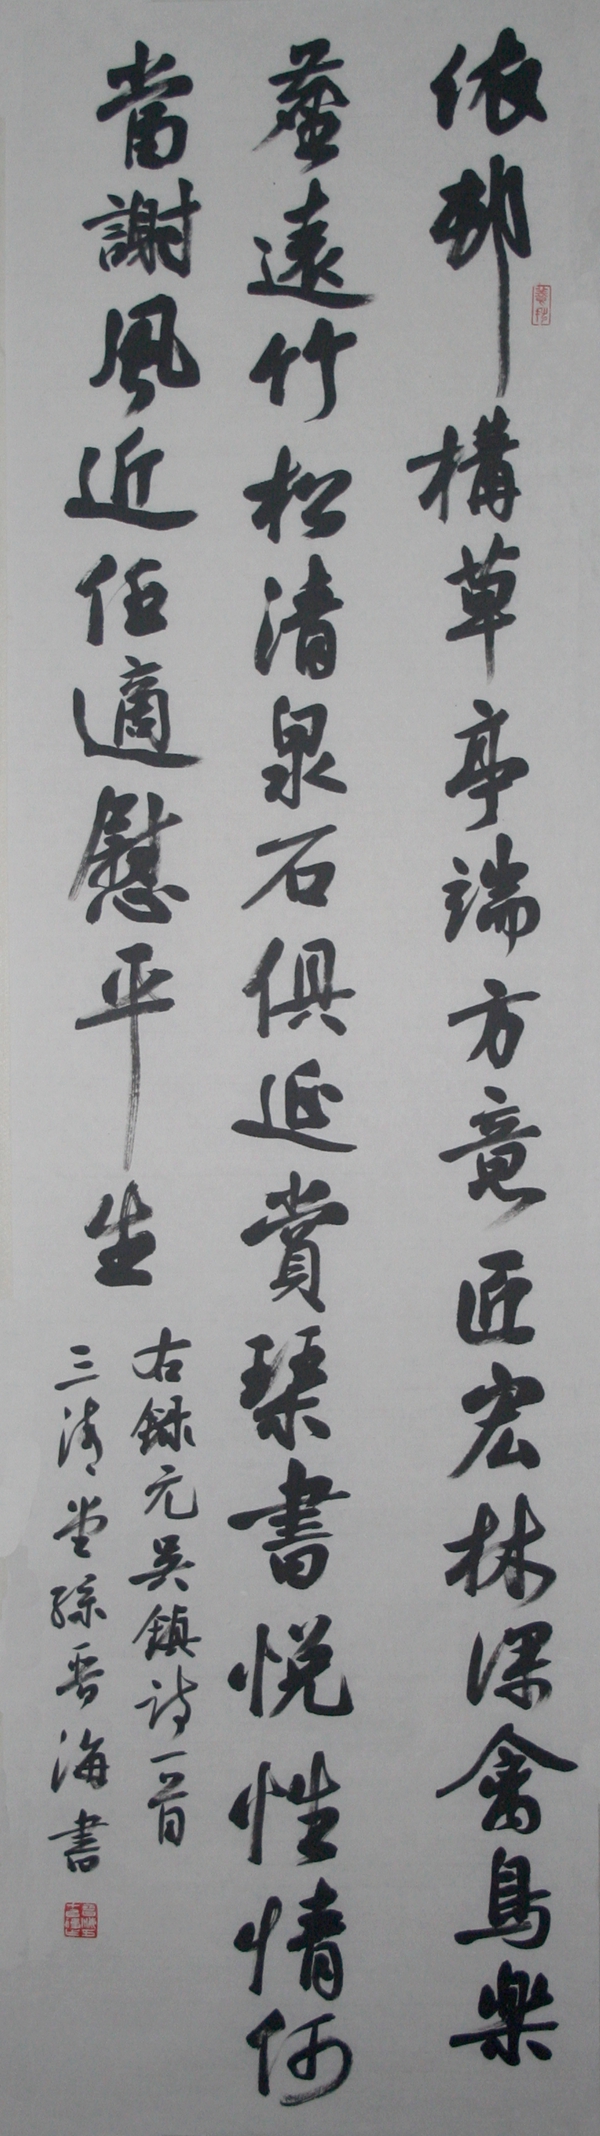 依邨構草亭端方竟匠宏林深禽鳥樂
塵遠竹松清泉石俱延賞琴書悅性情何
當謝風近任適慰平生
右録元吴鎮詩一首
三清堂孫晋海書